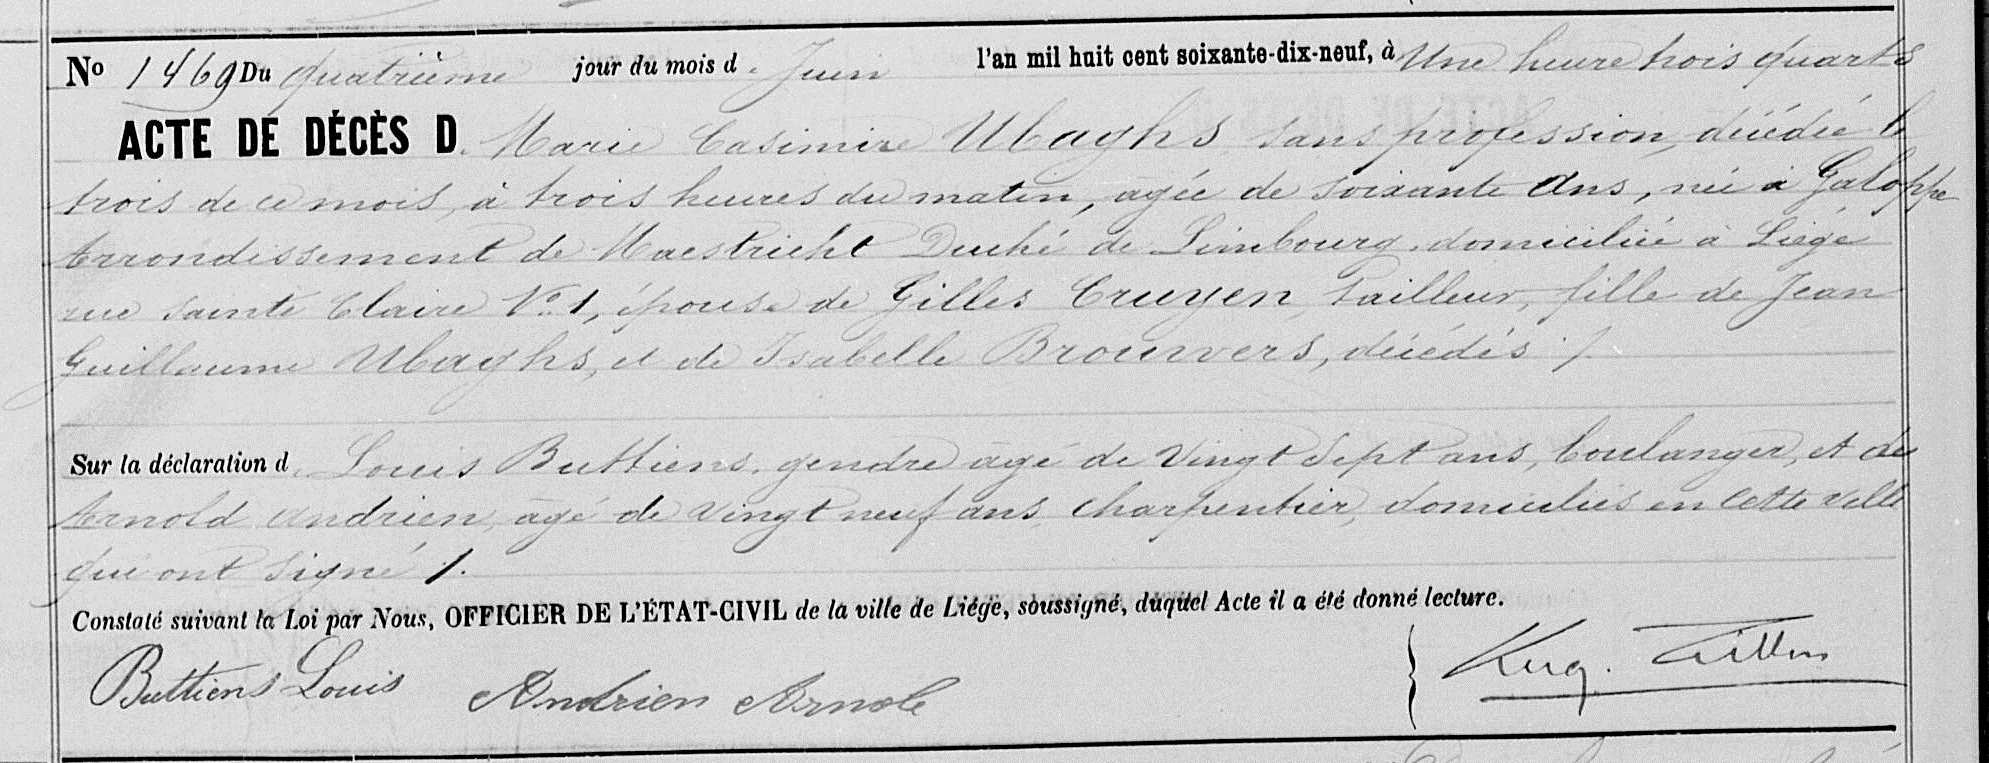 No 1469 Du quatrième jour du mois d e Juin l'an mil huit cent soixante-dix-neuf, à Une heure trois quarts
ACTE DE DÉCÈS D e Marie Casimire Ubaghs sans profession, décédée le
trois de ce mois, à trois heures du matin, âgée de soixante ans, née à Galoppe
Arrondissement de Maestricht Duché de Limbourg, domiciliée à Liége
rue sainte Claire No 1, épouse de Gilles Cruyen, tailleur, fille de Jean
Guillaume Ubaghs, et de Isabelle Brouwers, décédés ./.
Sur la déclaration d e Louis Buttiens, gendre âgé de vingt sept ans, boulanger, et de
Arnold Andrien, âgé de vingt neuf ans, charpentier, domiciliés en cette ville
qui ont signé ./.
Constaté suivant la Loi par Nous, OFFICIER DE L'ÉTAT-CIVIL de la ville de Liége, soussigné, duquel Acte il a été donné lecture.
Buttiens Louis Andrien Arnold